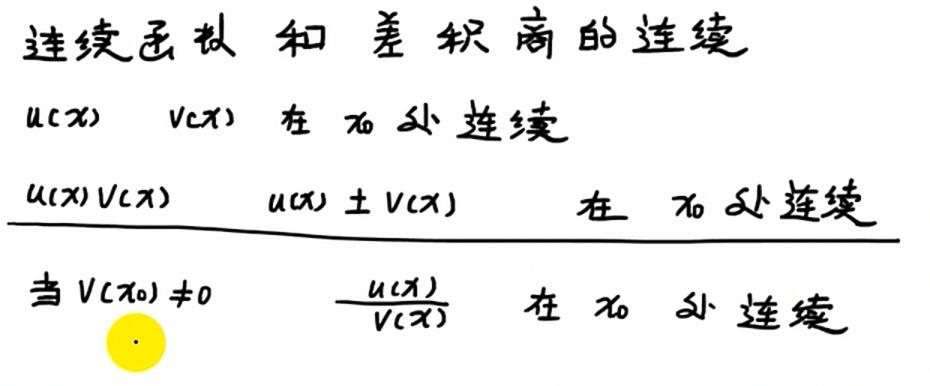 连续函数 和 差 积 商 的 连续
u(x) v(x) 在 x₀ 处 连续
u(x)v(x) u(x) ± v(x) 在 x₀ 处连续
当 v(x₀) ≠ 0 u(x)/v(x) 在 x₀ 处 连续